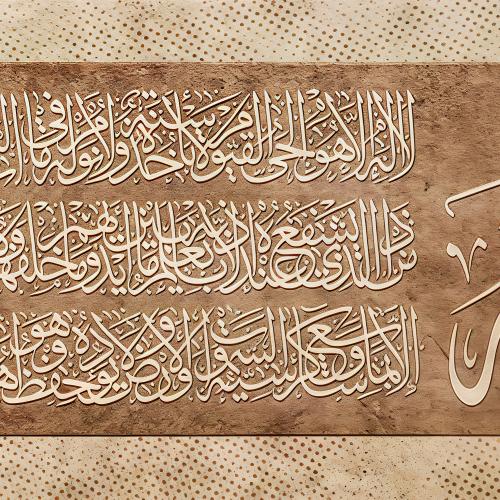 الله لا إله إلا هو الحي القيوم لا تأخذه سنة ولا نوم له ما في
من ذا الذي يشفع عنده إلا بإذنه يعلم ما بين أيديهم وما خلفهم
إلا بما شاء وسع كرسيه السموات والأرض ولا يؤده حفظهما وهو